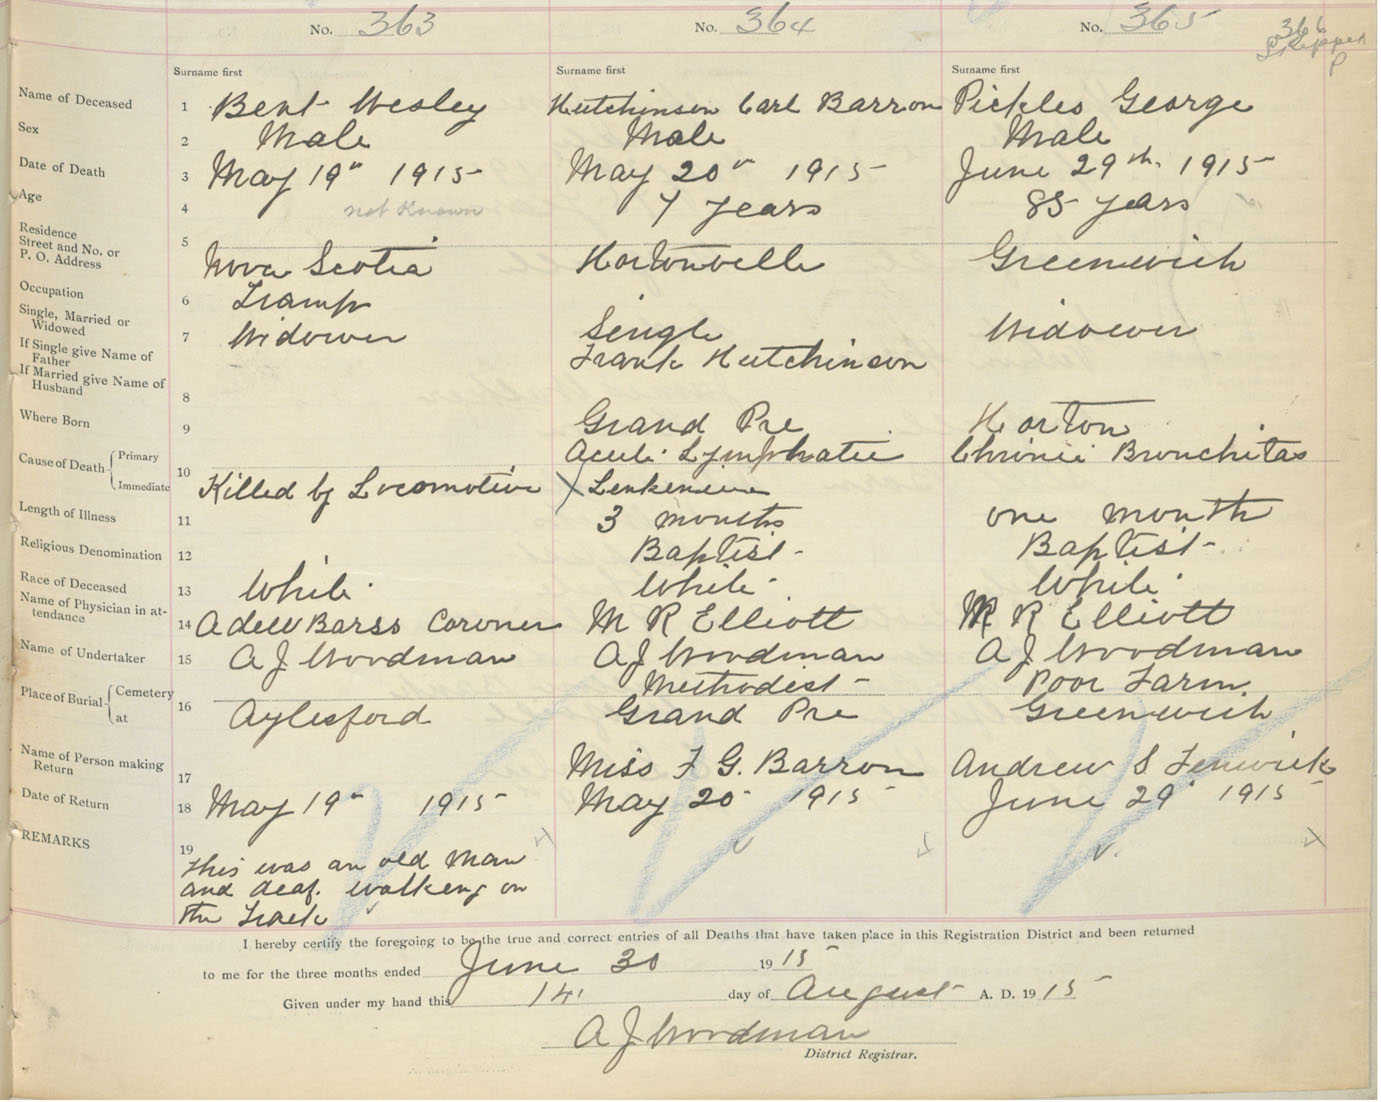 No. 363 No. 364 No. 365 366
Skipped
P
Surname first Surname first Surname first
Name of Deceased 1 Bent Wesley Hutchinson Carl Barron Pickles George
Sex 2 Male Male Male
Date of Death 3 May 19" 1915 May 20" 1915 June 29th. 1915
Age 4 not Known 7 years 85 years
Residence
Street and No. or
P. O. Address 5 Nova Scotia Hortonville Greenwich
Occupation 6 Tramp
Single, Married or
Widowed 7 Widower Single Widower
If Single give Name of
Father Frank Hutchinson
If Married give Name of
Husband 8
Where Born 9 Grand Pre Horton
Cause of Death { Primary Acute Lymphatic Chronic Bronchitas
10 Immediate Killed by Locomotive X Leukemia
Length of Illness 11 3 months one month
Religious Denomination 12 Baptist - Baptist -
Race of Deceased 13 White White White
Name of Physician in at-
tendance 14 A deW Barss Coroner M R Elliott M R Elliott
Name of Undertaker 15 A J Woodman A J Woodman A J Woodman
Place of Burial { Cemetery Methodist - Poor Farm
16 at Aylesford Grand Pre Greenwich
Name of Person making
Return 17 Miss F G. Barron Andrew S Fenwick
Date of Return 18 May 19" 1915 May 20 1915 June 29 1915
REMARKS 19
This was an old man
and deaf. walking on
the track
I hereby certify the foregoing to be the true and correct entries of all Deaths that have taken place in this Registration District and been returned
to me for the three months ended June 30 1915
Given under my hand this 14 day of August A. D. 1915
A J Woodman
District Registrar.